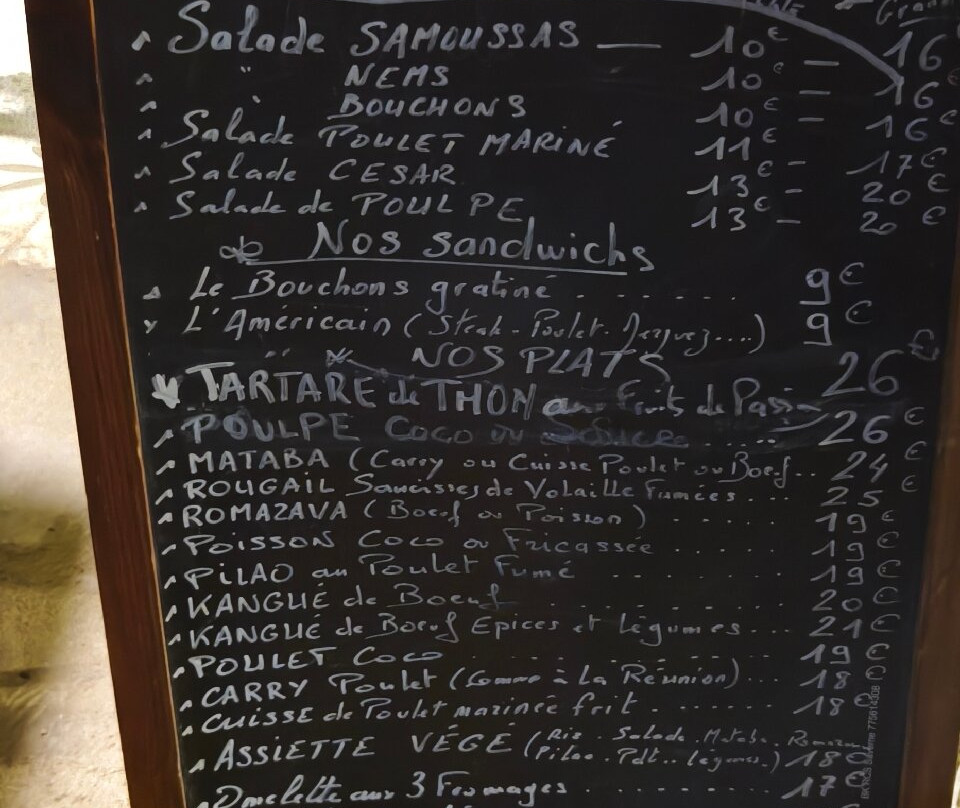 Grand
Salade SAMOUSSAS — 10€ — 16€
" NEMS 10€ — 16€
" BOUCHONS 10€ — 16€
Salade POULET MARINÉ 11€ - 17€
Salade CESAR 13€ - 20€
Salade de POULPE 13€ - 20€
Nos sandwichs
Le Bouchons gratiné . . . . . . 9€
L'Américain (Steak - Poulet - ....) 9€
NOS PLATS
TARTARE de THON aux fruits de Passion 26€
POULPE Coco ou ..... 26€
MATABA (Carry ou Cuisse Poulet ou Boeuf.. 24€
ROUGAIL Saucisses de Volaille fumées . .. 25€
ROMAZAVA (Boeuf ou Poisson) . . . . . 19€
POISSON Coco ou Fricassée . . . . . . 19€
PILAO au Poulet Fumé . . . . . . . 19€
KANGUE de Boeuf . . . . . . . . . 20€
KANGUE de Boeuf Epices et légumes ... 21€
POULET Coco . . . . . . . . . . 19€
CARRY Poulet (Comme à La Réunion) ... 18€
CUISSE de Poulet marinée frit . . . . . 18€
ASSIETTE VÉGÉ (Riz . Salade . Mataba . Romazava
Pilao . Pdt .. légumes.) 18€
Omelette aux 3 Fromages . . . . . 17€